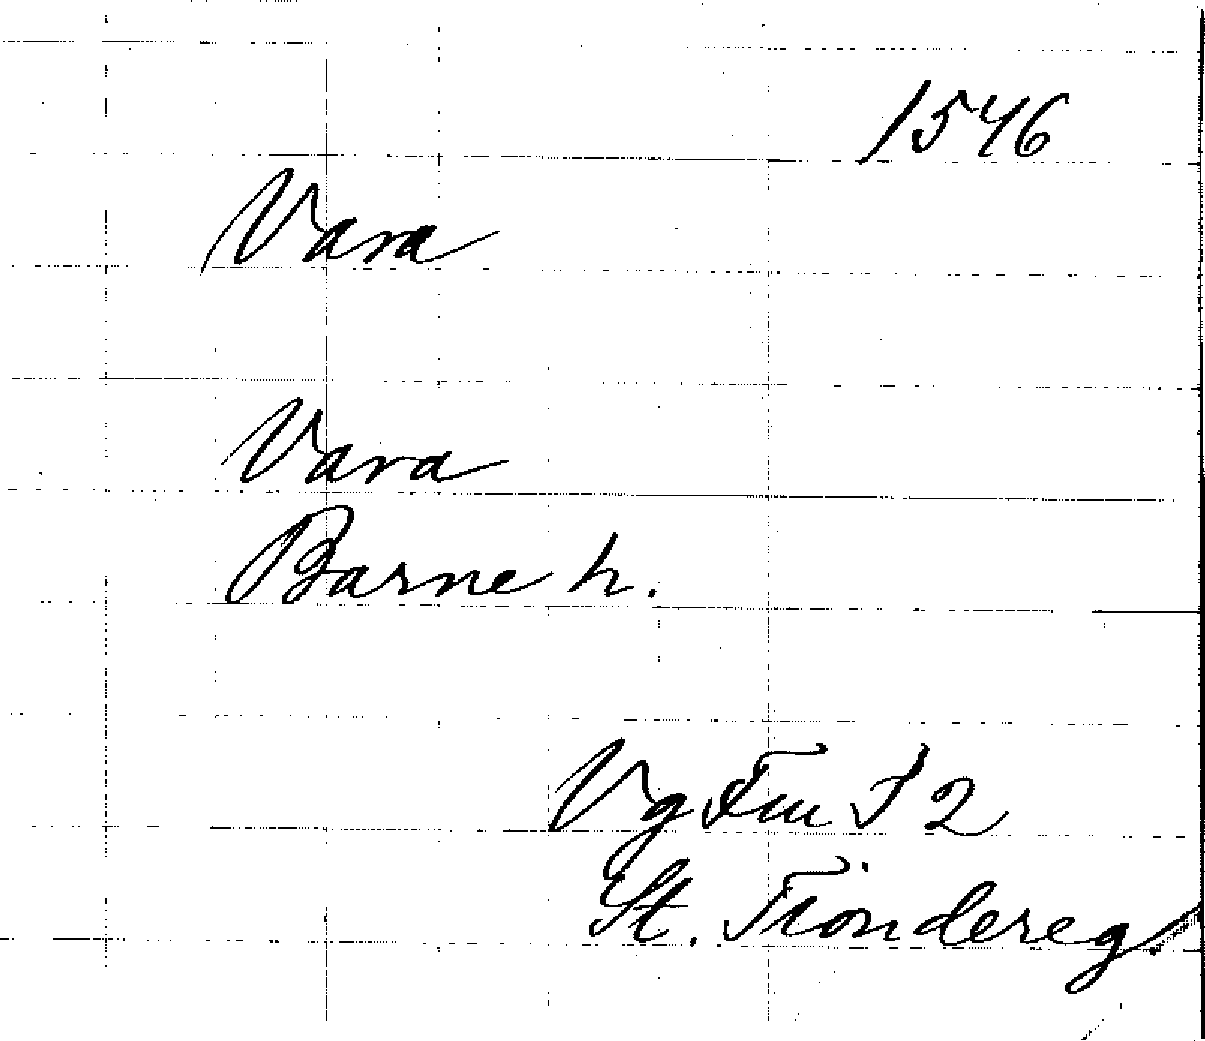 1546
Vara
Vara
Barne h.
Vg Tu T 2
St. Tiondereg.